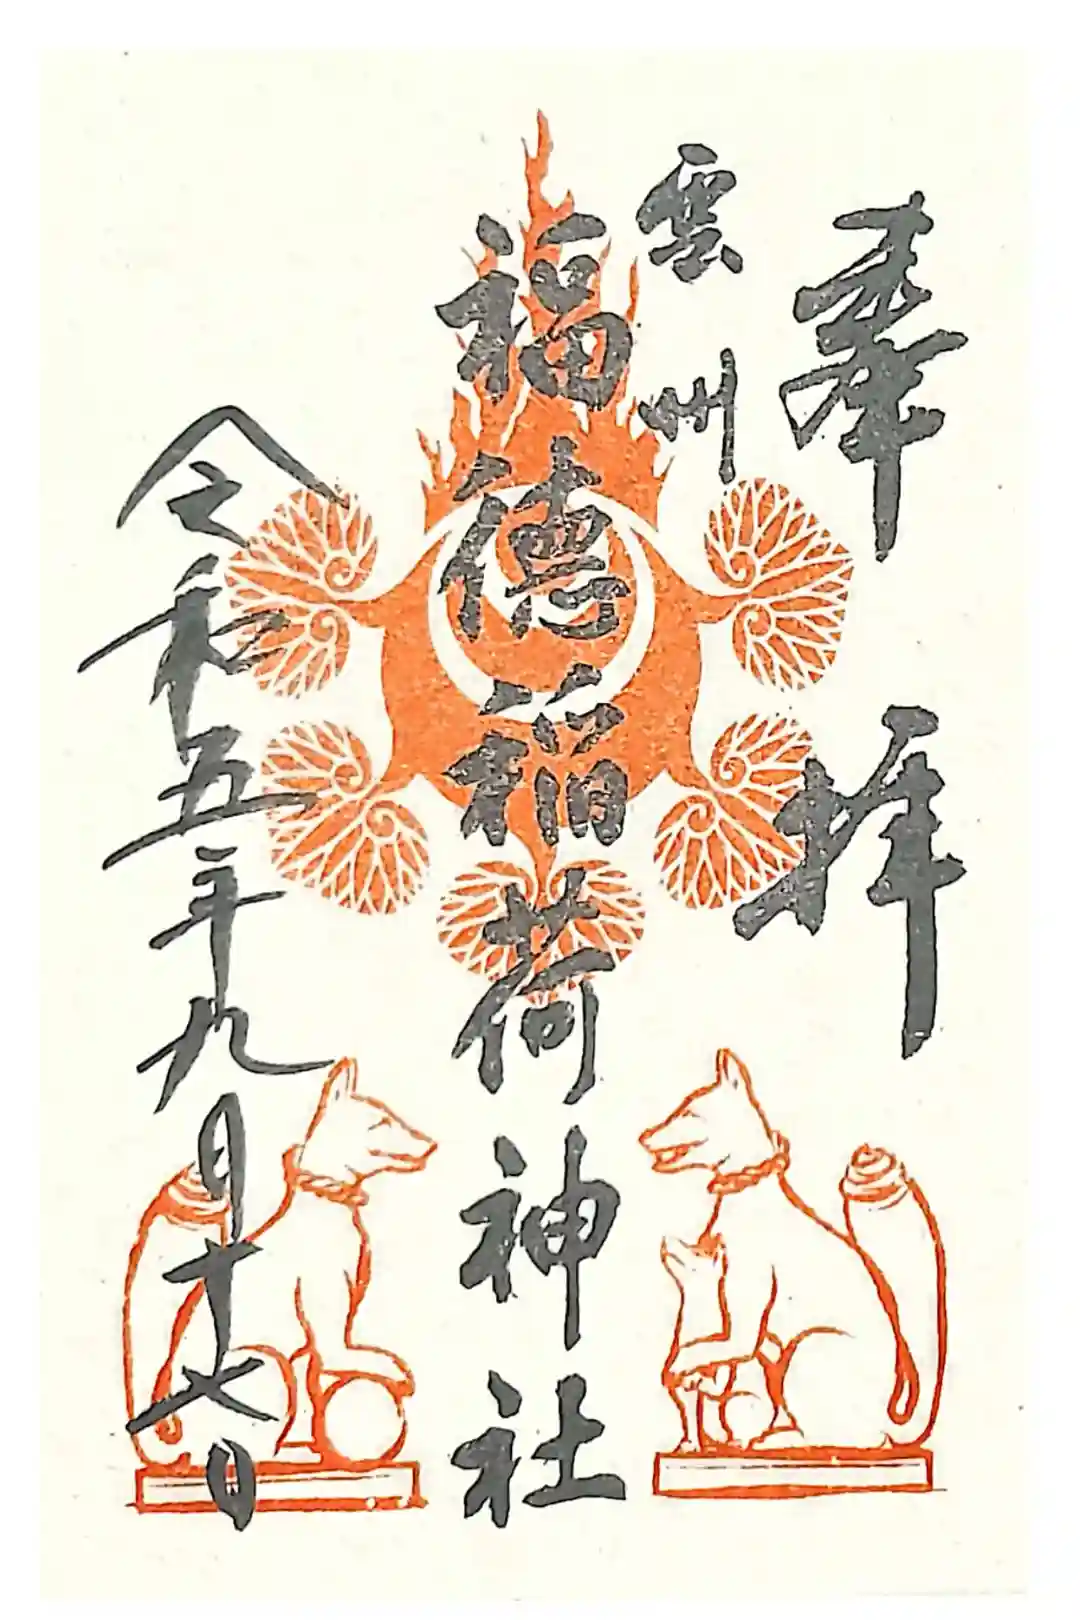 奉拝
雲州
福徳稲荷神社
令和五年九月十七日